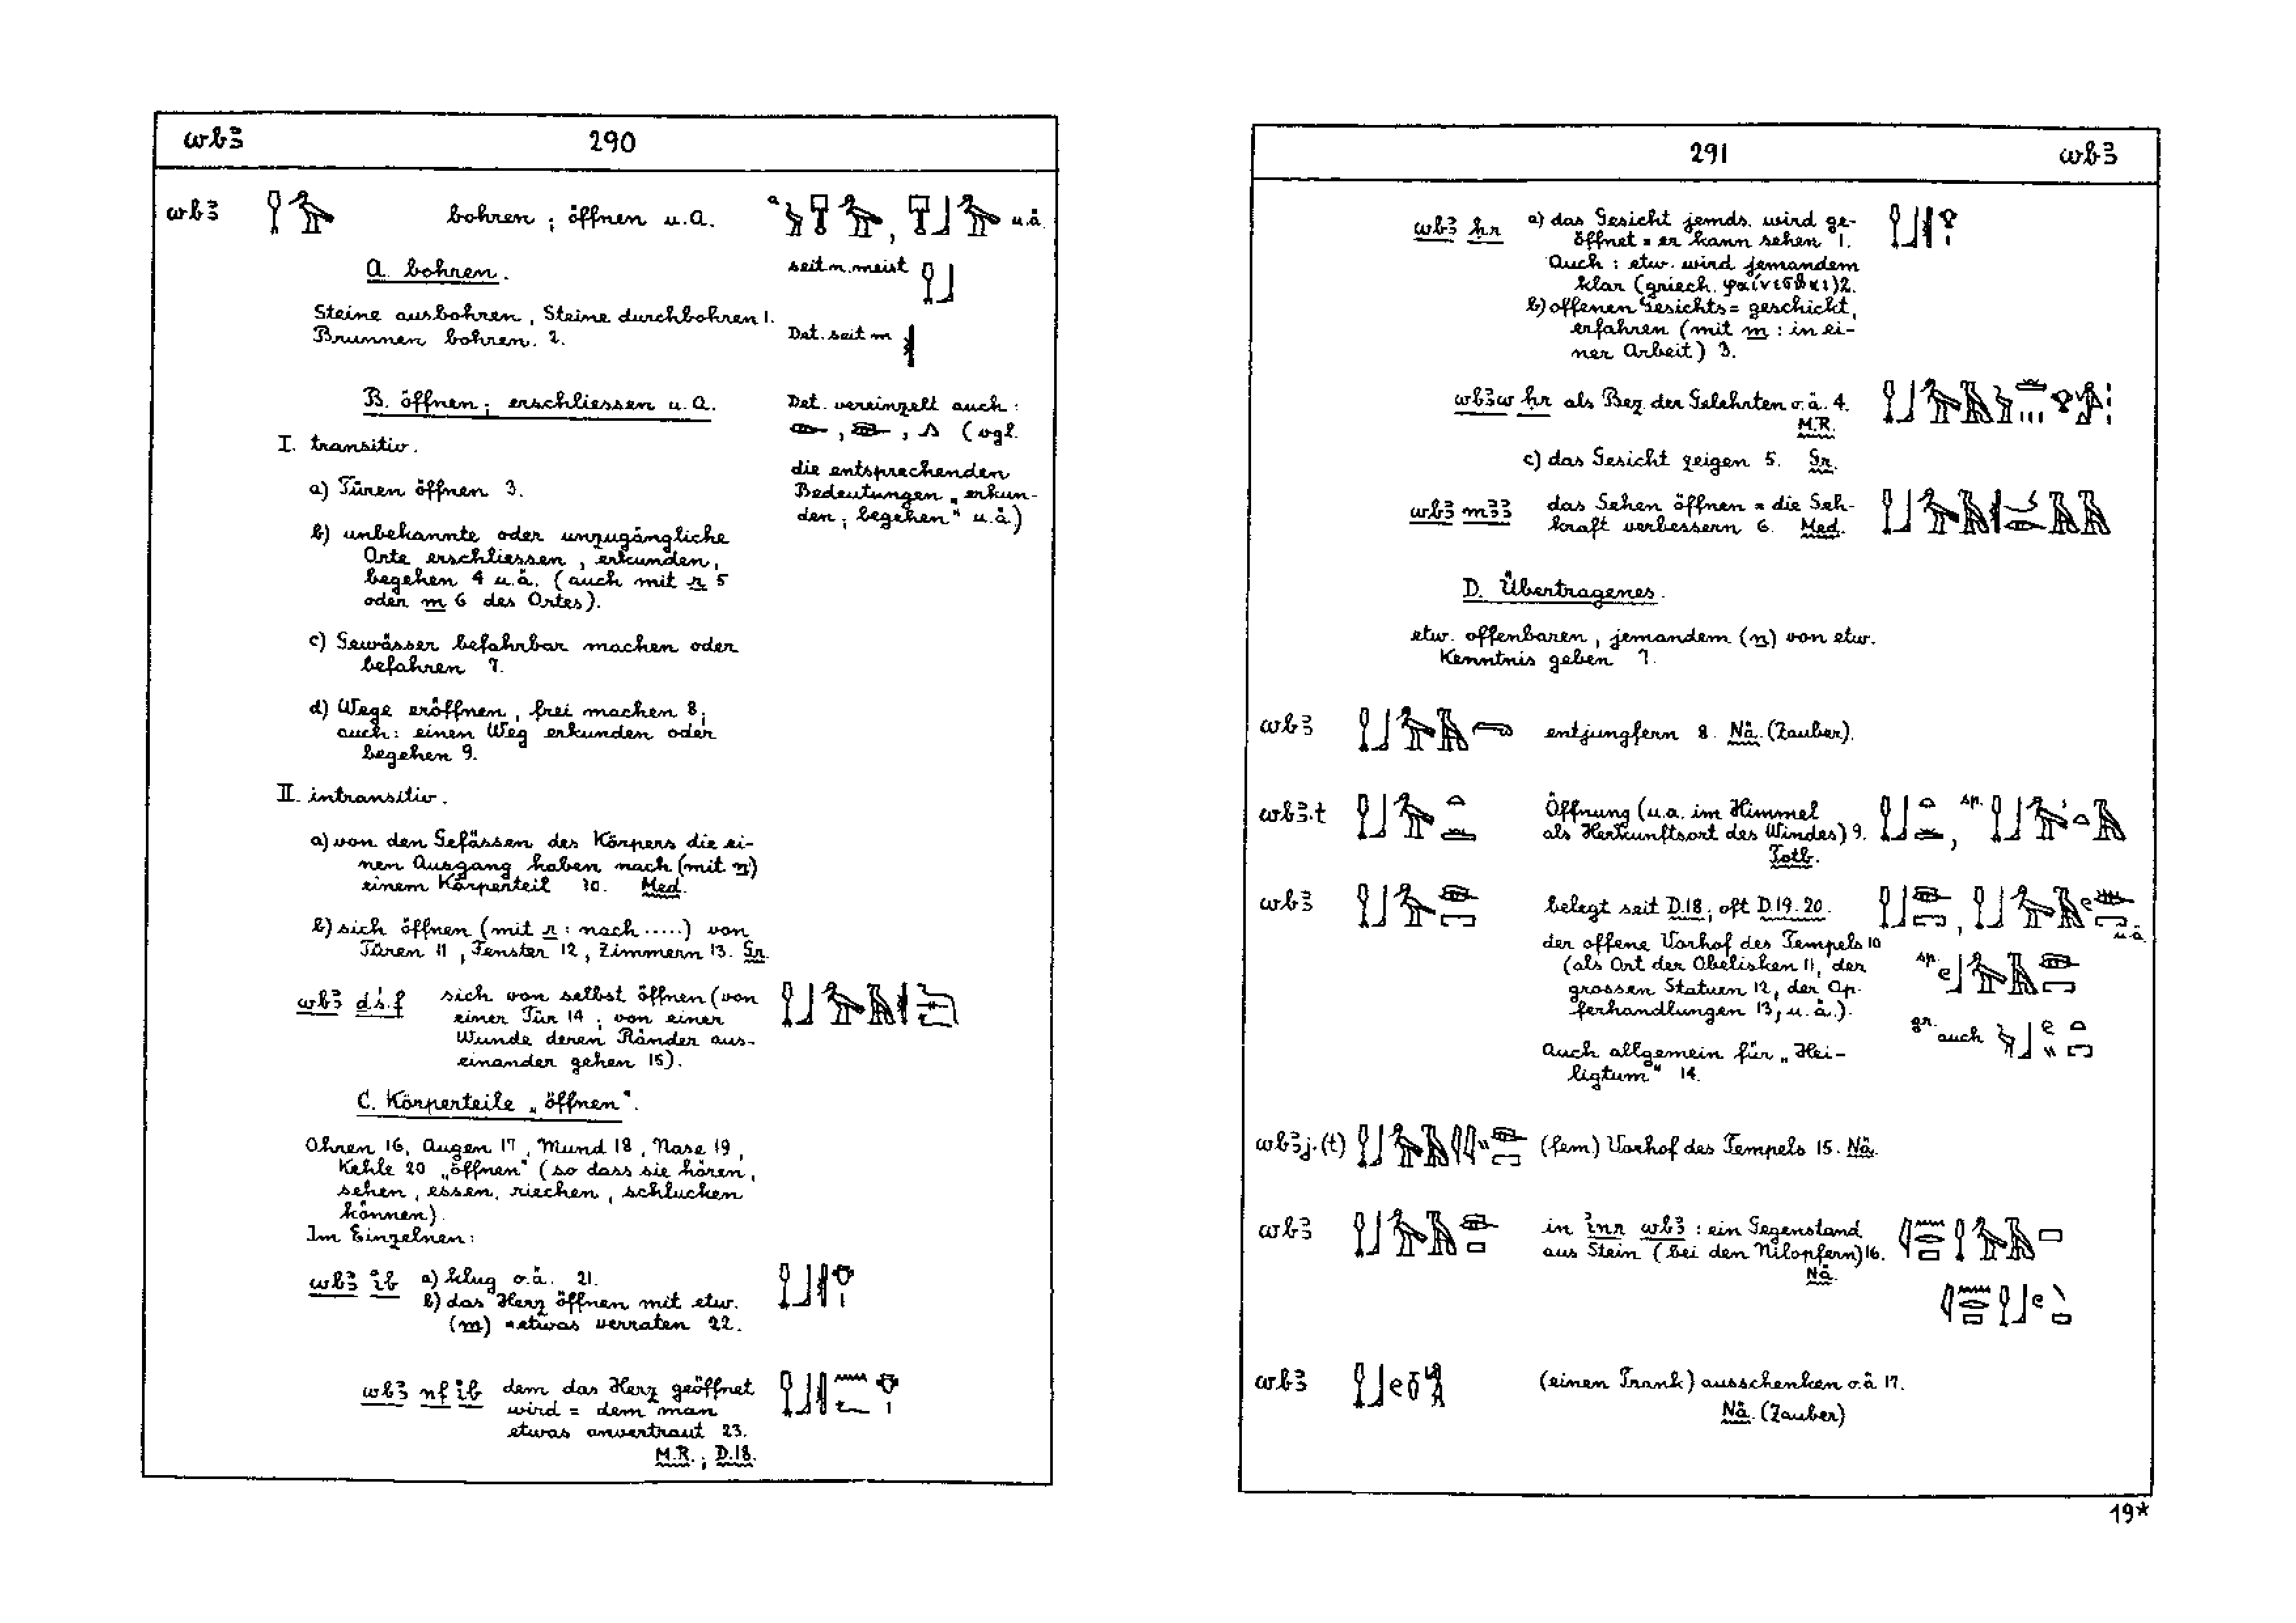 wbꜣ 290
wbꜣ bohren ; öffnen u. a. u.ä.
A. bohren.
seit m. meist
Steine ausbohren, Steine durchbohren 1.
Brunnen bohren. 2.
Det. seit m
B. öffnen ; erschliessen u. a.
Det. vereinzelt auch :
, , (vgl.
die entsprechenden
Bedeutungen „erkun-
den ; begehen" u.ä.)
I. transitiv.
a) Türen öffnen 3.
b) unbekannte oder unzugängliche
Orte erschliessen, erkunden,
begehen 4 u.ä. (auch mit r 5
oder m 6 des Ortes).
c) Gewässer befahrbar machen oder
befahren 7.
d) Wege eröffnen, frei machen 8;
auch: einen Weg erkunden oder
begehen 9.
II. intransitiv.
a) von den Gefässen des Körpers die ei-
nen Ausgang haben nach (mit n)
einem Körperteil 10. Med.
b) sich öffnen (mit r : nach .....) von
Türen 11, Fenster 12, Zimmern 13. Gr.
wbꜣ ḏś.f sich von selbst öffnen (von
einer Tür 14 ; von einer
Wunde deren Ränder aus-
einander gehen 15).
C. Körperteile „öffnen".
Ohren 16, Augen 17, Mund 18, Nase 19,
Kehle 20 „öffnen" (so dass sie hören,
sehen, essen, riechen, schlucken
können).
Im Einzelnen:
wbꜣ ı͗b a) klug o.ä. 21.
b) das Herz öffnen mit etw.
(m) = etwas verraten 22.
wbꜣ nf ı͗b dem das Herz geöffnet
wird = dem man
etwas anvertraut 23.
M.R. ; D.18.
291 wbꜣ
wbꜣ ḥr a) das Gesicht jemds. wird ge-
öffnet = er kann sehen 1.
Auch : etw. wird jemandem
klar (griech. φαίνεσθαι) 2.
b) offenen Gesichts = geschickt,
erfahren (mit m : in ei-
ner Arbeit) 3.
wbꜣw ḥr als Bez. der Gelehrten o.ä. 4.
M.R.
c) das Gesicht zeigen 5. Gr.
wbꜣ mꜣꜣ das Sehen öffnen = die Seh-
kraft verbessern 6. Med.
D. Übertragenes.
etw. offenbaren, jemandem (n) von etw.
Kenntnis geben 7.
wbꜣ entjungfern 8. Nä. (Zauber).
wbꜣ.t Öffnung (u.a. im Himmel
als Herkunftsort des Windes) 9.
Totb.
sp.
wbꜣ belegt seit D.18; oft D.19.20.
u.ä.
der offene Vorhof des Tempels 10
(als Ort der Obelisken 11, der
grossen Statuen 12, der Op-
ferhandlungen 13, u.ä.).
sp.
gr. auch
Auch allgemein für „Hei-
ligtum" 14.
wbꜣj.(t) (fem) Vorhof des Tempels 15. Nä.
wbꜣ in ı͗nr wbꜣ : ein Gegenstand
aus Stein (bei den Nilopfern) 16.
Nä.
wbꜣ (einen Trank) ausschenken o.ä 17.
Nä. (Zauber)
19*